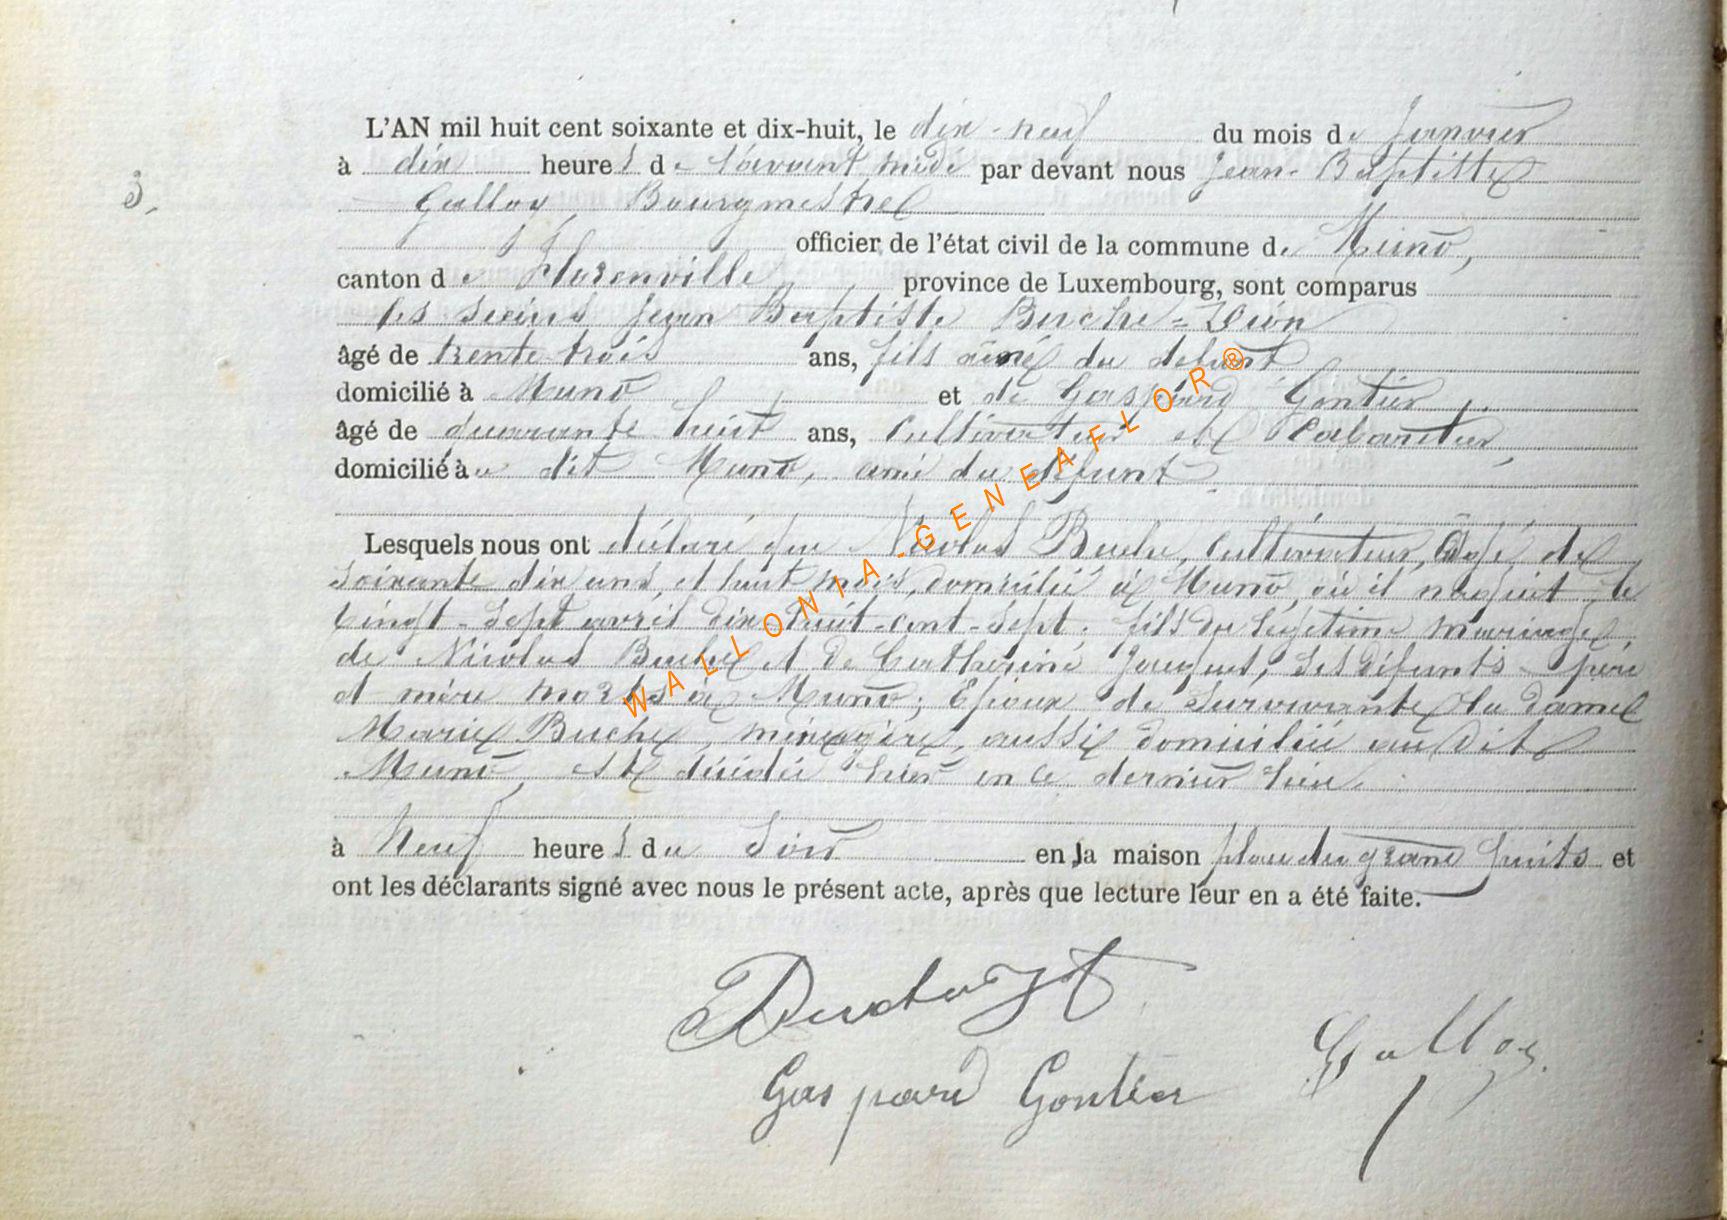 L'AN mil huit cent soixante et dix-huit, le dix-neuf du mois de Janvier
3.
à dix heures de l'avant midi par devant nous Jean-Baptiste
Galloy, Bourgmestre
officier de l'état civil de la commune de Muno,
canton de Florenville province de Luxembourg, sont comparus
les sieurs Jean Baptiste Buche =
âgé de trente-trois ans, fils ainé du defunt
domicilié à Muno et de Gaspard Gontier
âgé de quarante huit ans, Cultivateur et Cabaretier,
domicilié au dit Muno, ami du defunt
Lesquels nous ont déclaré que Nicolas Buche, Cultivateur, âgé de
soixante dix ans, et huit mois, domicilié à Muno, où il naquit le
vingt-sept avril dix-huit-cent-sept. fils du légitime mariage
de Nicolas Buche et de Catherine Jacquet, ses défunts père
et mère morts à Muno; Epoux de survivante la dame
Marie Buche, ménagère, aussi domiciliée au dit
Muno, est décédé hier en ce dernier lieu.
à Neuf heures du soir en la maison place du grand puits et
ont les déclarants signé avec nous le présent acte, après que lecture leur en a été faite.
Gaspard Gontier
Galloy.
WALLONIA-GENEAFLOR®